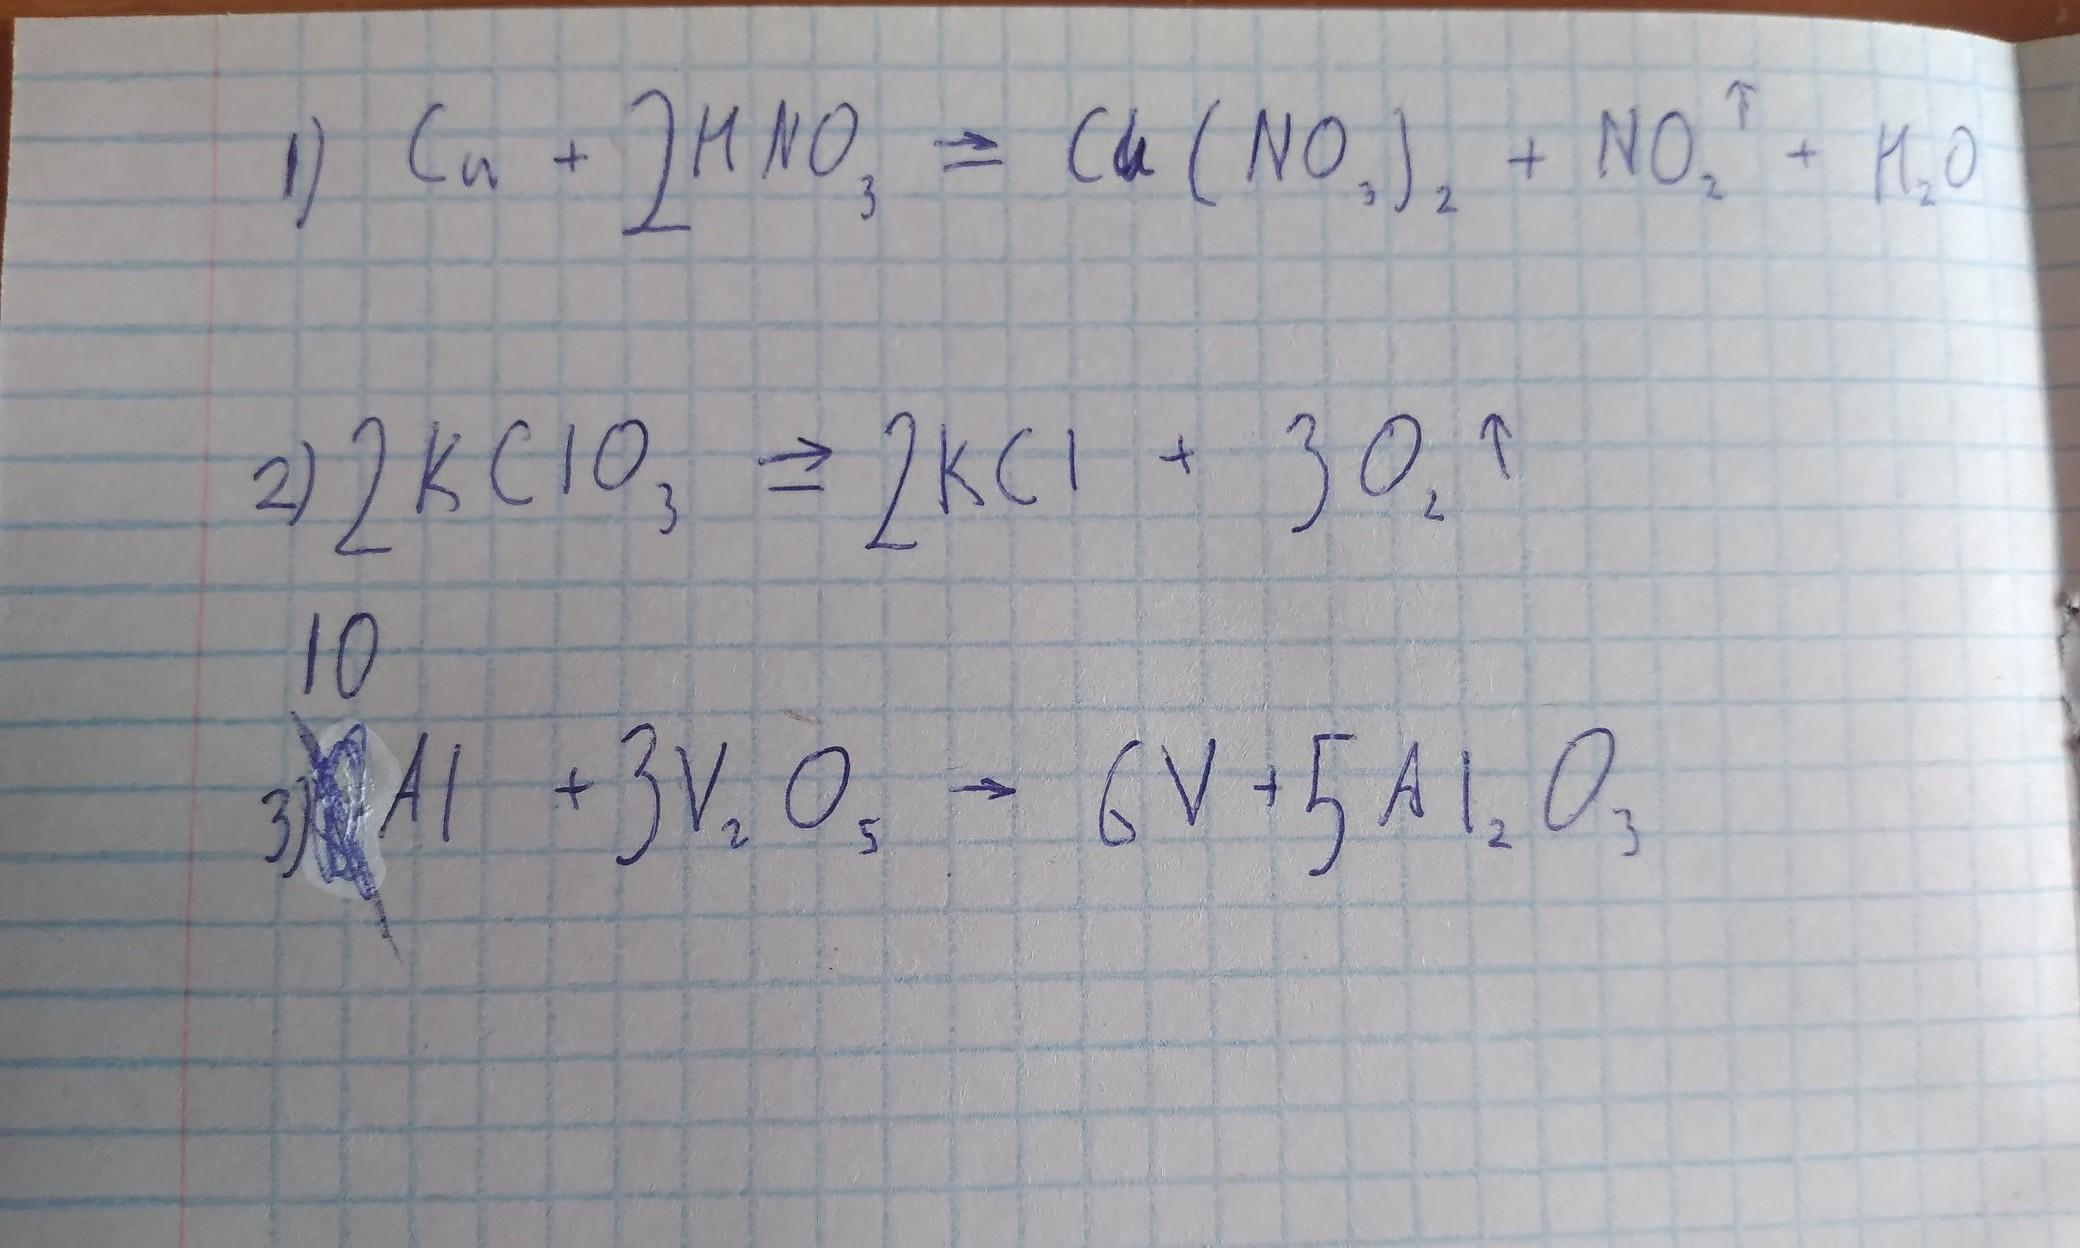 1) Cu + 2HNO₃ ⇒ Cu(NO₃)₂ + NO₂↑ + H₂O
2) 2KClO₃ ⇒ 2KCl + 3O₂↑
10
3) Al + 3V₂O₅ → 6V + 5Al₂O₃